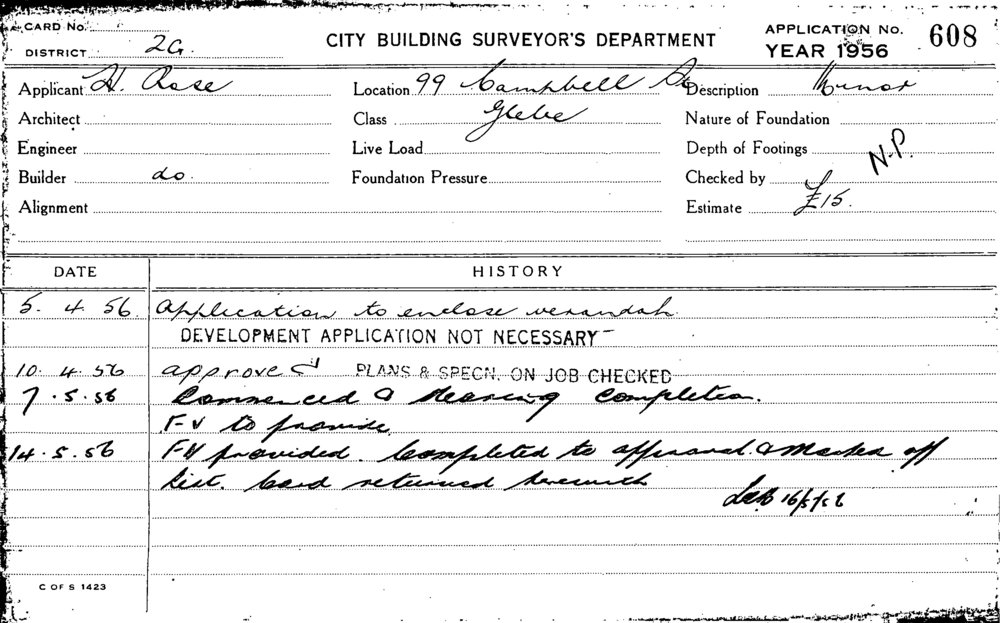 CARD No.
DISTRICT 2G.
CITY BUILDING SURVEYOR'S DEPARTMENT
APPLICATION No. 608
YEAR 1956
Applicant H. Rose
Location 99 Campbell St
Description Minor
Architect
Class Glebe
Nature of Foundation
Engineer
Live Load
Depth of Footings
N.P.
Builder do.
Foundation Pressure
Checked by
Alignment
Estimate £15.
DATE HISTORY
5. 4. 56. Application to enclose verandah.
DEVELOPMENT APPLICATION NOT NECESSARY
10. 4. 56 approved PLANS & SPECN. ON JOB CHECKED
7.5.56 Commenced & nearing completion.
F-V to provide.
14.5.56 FV provided. Completed to approval & marked off
list. Card returned herewith
16/5/56
C OF S 1423